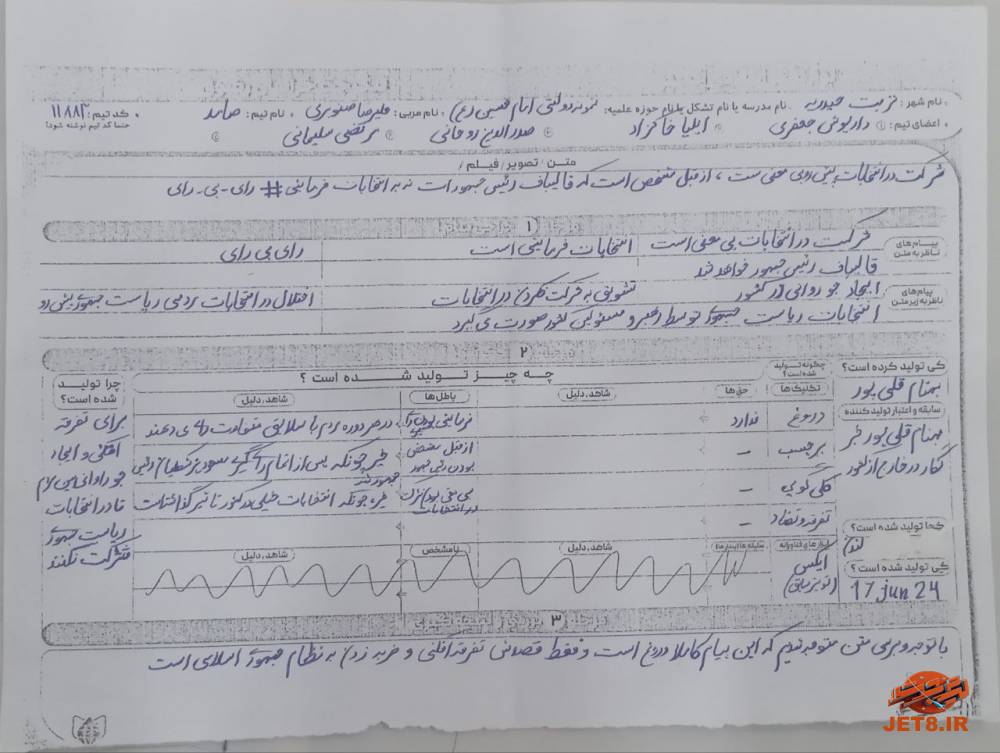 نام شهر: تربت حیدریه . نام مدرسه یا نام تشکل یا نام حوزه علمیه: نمونه دولتی امام حسین (ع) . نام مربی: علیرضا صنوبری . نام تیم: صامد . کد تیم: ۱۱۸۸۳
حتما کد تیم نوشته شود!
اعضای تیم: ① داریوش جعفری ② ایلیا خاکزاد ③ صدرالدین روحانی ④ مرتضی سلیمانی
متن / تصویر / فیلم /
شرکت در انتخابات پیش رو بی معنی ست ، از قبل مشخص است که قالیباف رئیس جمهور است نه به انتخابات فرمایشی # رای - بی - رای
۱
پیام‌های ناظر به متن
شرکت در انتخابات بی معنی است
انتخابات فرمایشی است
رای بی رای
قالیباف رئیس جمهور خواهد شد
پیام‌های ناظر به زیر متن
ایجاد جو روانی در کشور
تشویق به شرکت نکردن در انتخابات
اختلال در انتخابات مردمی ریاست جمهوری پیش رو
انتخابات ریاست جمهوری توسط رهبر و مسئولین کشور صورت می گیرد
۲
کی تولید کرده است؟
بهنام قلی پور
سابقه و اعتبار تولید کننده
بهنام قلی پور خبر
نگار در خارج از کشور
کجا تولید شده است؟
لندن
کی تولید شده است؟
17 jun 24
چگونه تولید شده است؟
تکنیک‌ها
دروغ
برچسب
کلی گویی
تفرقه و تضاد
ابزارهای فناورانه
ایکس
(توییتر سابق)
چه چیز تولید شده است ؟
حق‌ها
شاهد، دلیل
باطل‌ها
شاهد، دلیل
ندارد
فرمایشی بودن
در هر دوره مردم با سلایق متفاوت رای می دهند
-
از قبل مشخص بودن رئیس جمهور
خیر چونکه پس از اتمام رای گیری
جمهور شد
-
بی معنی بودن شرکت در انتخابات
خیر، چونکه انتخابات خیلی در کشور تاثیر گذار است
-
شاهد، دلیل
نامشخص
شاهد، دلیل
چرا تولید شده است؟
برای تفرقه
افکنی و ایجاد
جو روانی بین مردم
تا در انتخابات
ریاست جمهوری
شرکت نکنند
۳
با توجه و بررسی متن متوجه شدیم که این پیام کاملا دروغ است و فقط قصدش تفرقه افکنی و ضربه زدن به نظام جمهوری اسلامی است
JET8.IR